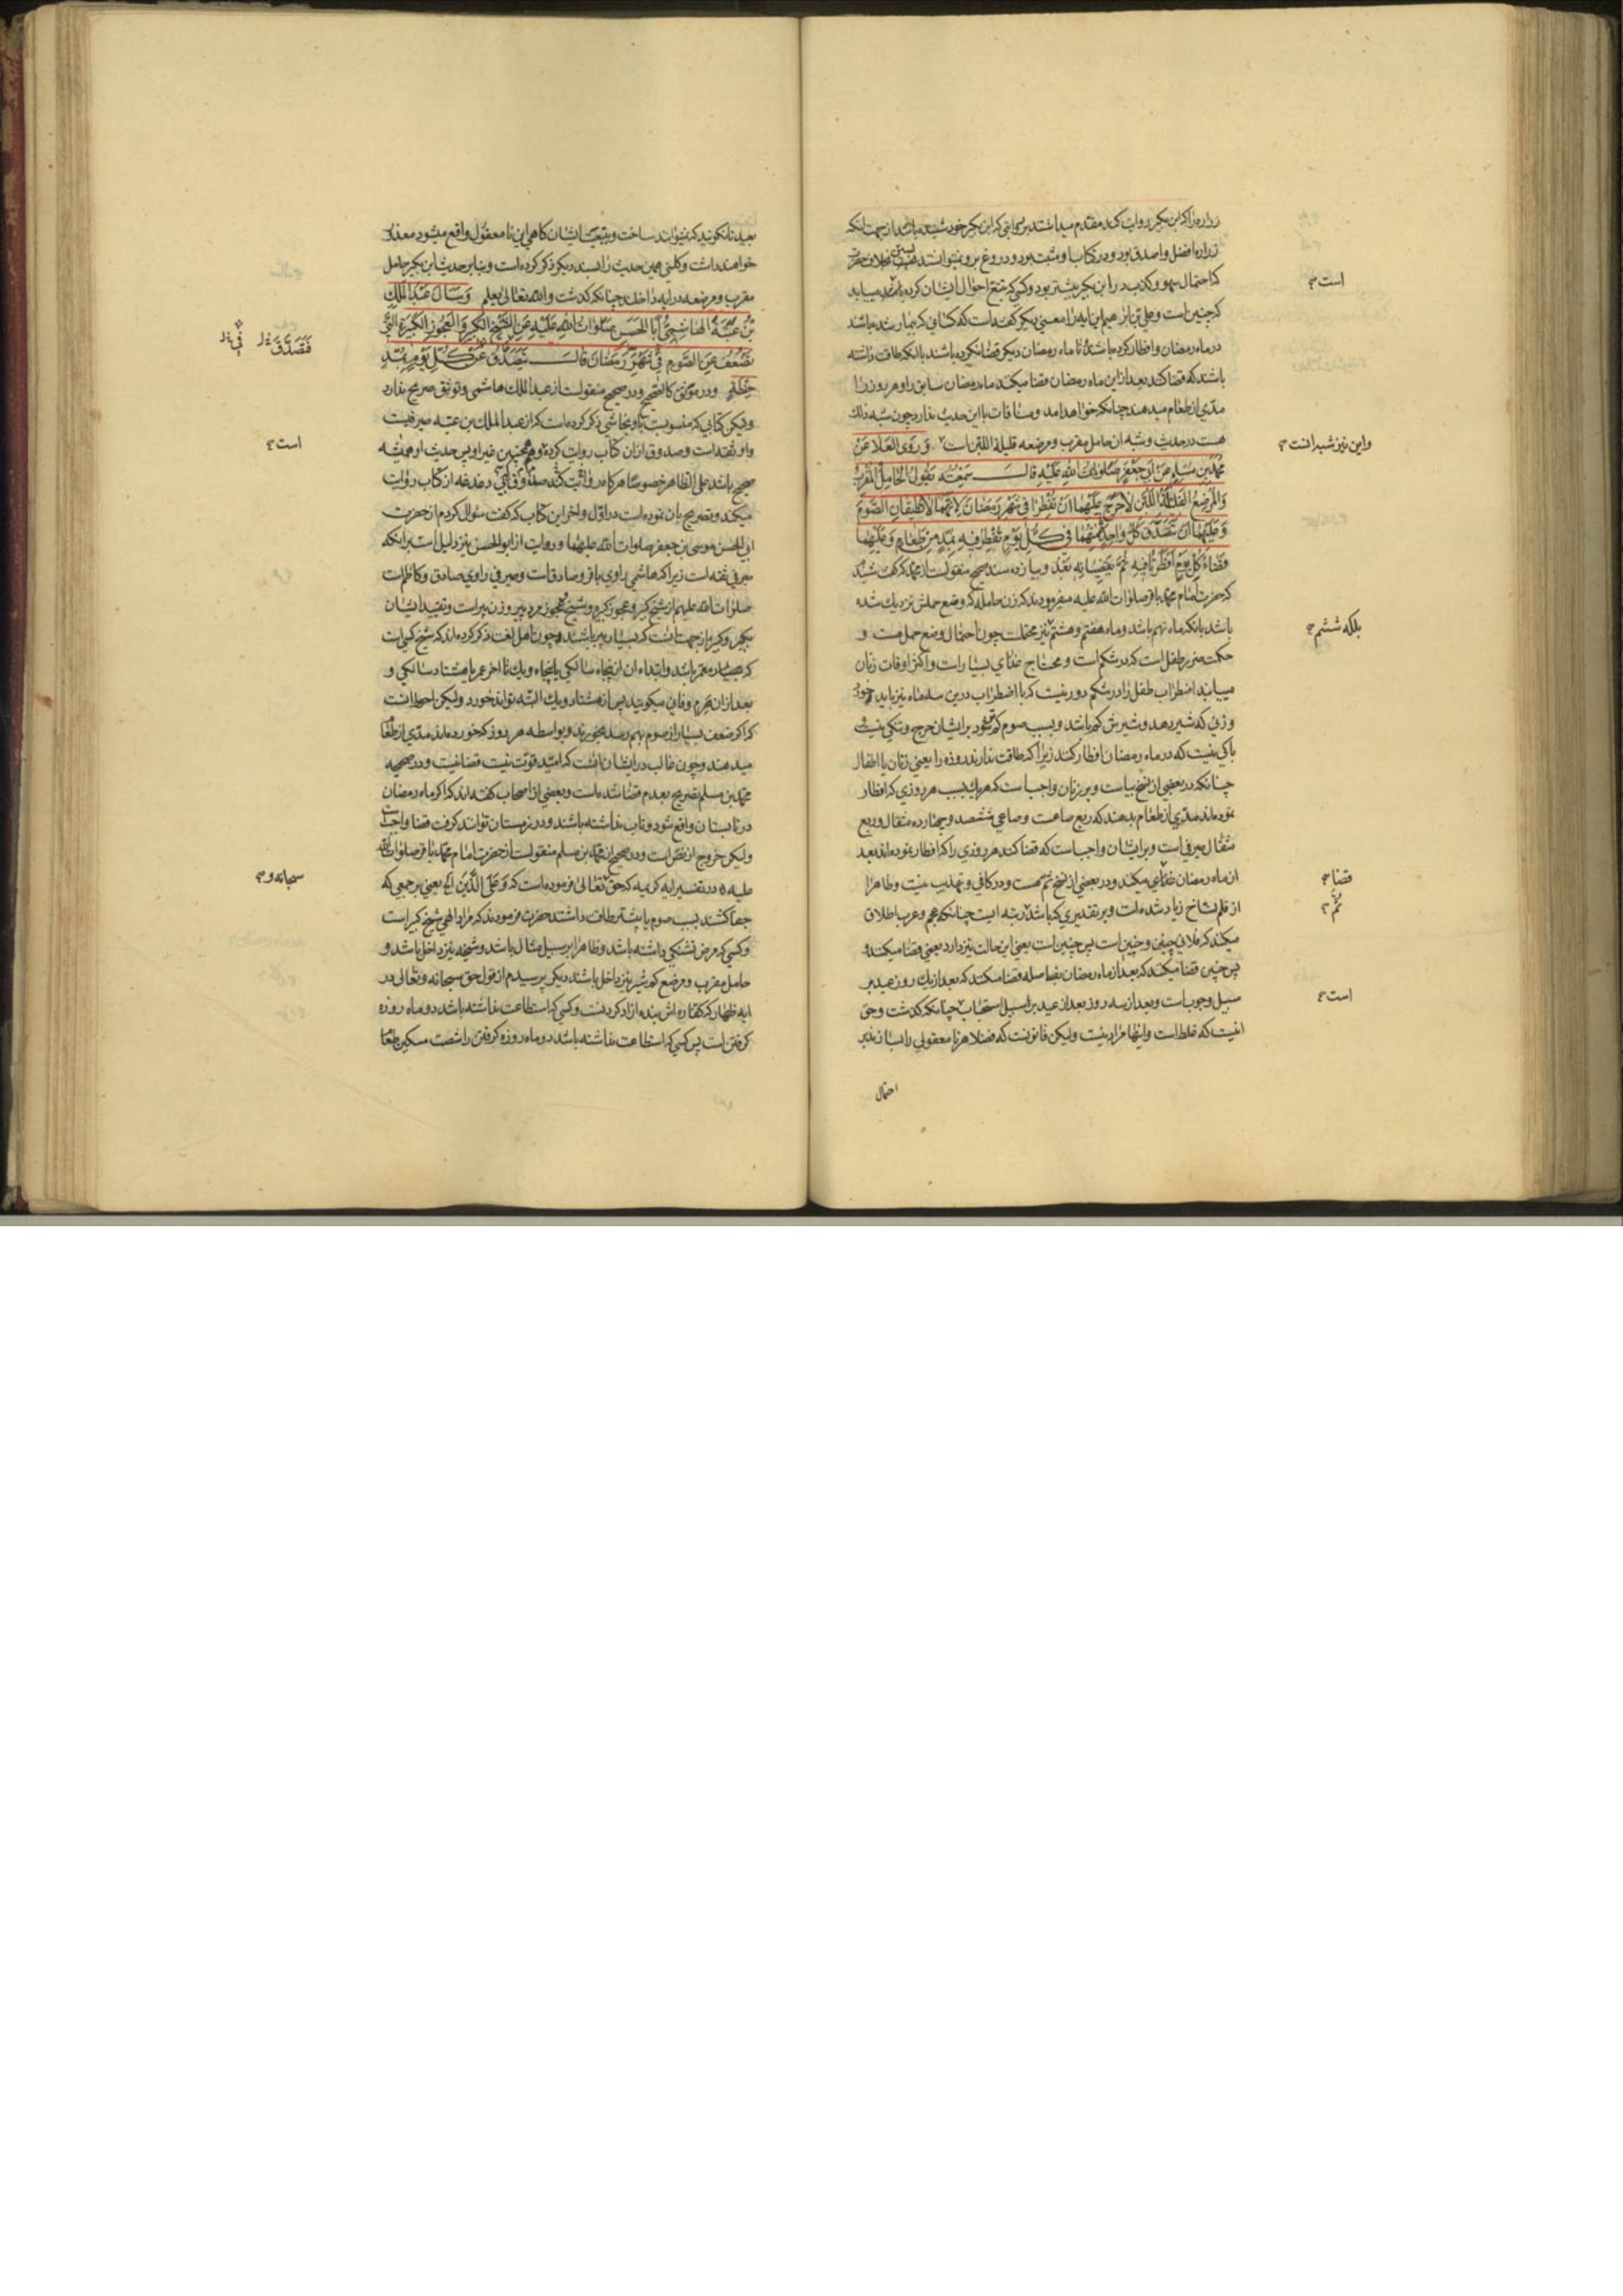 زراره را که ابن بکیر روایت کند مقدم میداشتند بر روایتی که ابن بکیر خود شنیده باشد از جهت آنکه
زراره افضل و اصدق بود و در کتاب او مثبت بود و دروغ برو نمیتوانند بست بخلاف
که احتمال سهو و کذب در ابن بکیر بیشتر بود و کسی که تتبع احوال ایشان کرده باشد میباید
است
که چنین است و علی بن ابراهیم این ایه را معنی دیگر گفته است که کسانی که بیمار شده باشند
در ماه رمضان و افطار کرده باشند تا ماه رمضان دیگر قضا نکرده باشند با آنکه طاقت داشته
باشند که قضا کنند بعد از این ماه رمضان قضا میکند ماه رمضان سابق را و هر روز را
مدی از طعام میدهند چنانکه خواهد امد و منافات با این حدیث ندارد چون شبه ذلک
هست در حدیث و شبه ان حامل مقرب و مرضعه قلیلة اللبن است وَ رَوَی العَلَاءُ عَنْ
و این نیز شبه انست
مُحَمَّدِ بْنِ مُسْلِمٍ عَنْ اَبِی جَعْفَرٍ صَلَوَاتُ اللّهِ عَلَیْهِ قَالَ سَمِعْتُهُ یَقُولُ الْحَامِلُ الْمُقْرِبُ
وَالْمُرْضِعُ الْقَلِیلَةُ اللَّبَنِ لَا حَرَجَ عَلَیْهِمَا اَنْ تُفْطِرَا فِی شَهْرِ رَمَضَانَ لِاَنَّهُمَا لَا تُطِیقَانِ الصَّوْمَ
وَ عَلَیْهِمَا اَنْ تَتَصَدَّقَ کُلُّ وَاحِدَةٍ مِنْهُمَا فِی کُلِّ یَوْمٍ تُفْطِرُ فِیهِ بِمُدٍّ مِنْ طَعَامٍ وَ عَلَیْهِمَا
قَضَاءُ کُلِّ یَوْمٍ اَفْطَرَتَا فِیهِ ثُمَّ تَقْضِیَانِهِ بَعْدُ و بیازده سند صحیح منقولست از محمد که گفت شنیدم
که حضرت امام محمد باقر صلوات الله علیه میفرمودند که زن حامله که وضع حملش نزدیک شده
باشد بانکه ماه نهم باشد و ماه هفتم و هشتم نیز محتملست چون احتمال وضع حمل هست و
بلکه ششم
حکمت بر طفل است که در شکم است و محتاج غذای بسیار است و اکثر اوقات زنان
میبابند اضطراب طفل را در شکم دور نیست که با اضطراب درین سه ماه نیز باید خورد
و زنی که شیر دهد و شیرش کم باشد و بسبب صوم کمتر شود بر ایشان حرج و تنگی نیست
باکی نیست که در ماه رمضان افطار کنند زیرا که طاقت ندارند روزه را یعنی زنان یا اطفال
چنانکه در بعضی از نسخ بیاست و بر زنان واجب است که هر یک بسبب هر روزی که افطار
نموده اند مدی از طعام بدهند که ربع صاعست و صاعی ششصد و چهارده مثقال و ربع
مثقال صیرفی است و بر ایشان واجب است که قضا کنند هر روزی را که افطار نموده اند بعد
از ماه رمضان میکند و در بعضی از نسخ ثم هست و در کافی و تهذیب نیست و ظاهرا
قضا
از قلم نساخ زیاد شده است و بر تقدیری که باشد رتبه ایست چنانکه عجم و عرب اطلاق
ثم
میکند که فلانی چنین و چنین است پس چنین است یعنی این حالت نیز دارد یعنی قضا میکند و
پس چنین قضا میکند که بعد از ماه رمضان بفاصله قضا میکند که بعد از یک روز عید بر
سبیل وجوب است و بعد از سه روز بعد از عید بر سبیل استحباب چنانکه گذشت و حق
است
انیست که غلط است و اینها مراد نیست ولیکن قانونست که فضلا هر نامعقولی را بسازند بر
احتمال
بعید تا نگویند که نمیتوانند ساخت و بتبعیت ایشان گاهی این نامعقول واقع میشود معذور
خواهند داشت و کلینی همین حدیث را بسند دیگر ذکر کرده است و بنا بر حدیث ابن بکیر حامل
مقرب و مرضعه در ایه داخلند چنانکه گذشت والله تعالی یعلم وَ سَاَلَ عَبْدُ الْمَلِکِ
بْنُ عُتْبَةَ الْهَاشِمِیُّ اَبَا الْحَسَنِ صَلَوَاتُ اللّهِ عَلَیْهِ عَنِ الشَّیْخِ الْکَبِیرِ وَ الْعَجُوزِ الْکَبِیرَةِ الَّتِی
فَتَصَدَّقَ فی
تَضْعُفُ عَنِ الصَّوْمِ فِی شَهْرِ رَمَضَانَ قَالَ تَتَصَدَّقُ عَنْ کُلِّ یَوْمٍ بِمُدِّ
حِنْطَةٍ و در موثق کالصحیح و در صحیح منقولست از عبد الملک هاشمی و توثیق صریح ندارد
و لیکن کتابی که منسوبست باو نجاشی ذکر کرده است که از عبد الملک بن عتبه صیرفیست
و او ثقه است و صدوق از ان کتاب روایت کرده و همچنین غیر او پس حدیث او همیشه
است
صحیح باشد علی الظاهر خصوصا هر گاه
میکند و تصریح بان نموده است در اول و اخر این کتاب که گفت سئوال کردم از حضرت
ابی الحسن موسی بن جعفر صلوات الله علیهما و روایت از ابو الحسن نیز دلیل است بر اینکه
صیرفی ثقه است زیرا که هاشمی راوی باقر و صادق است و صیرفی راوی صادق و کاظم است
صلوات الله علیهم از شیخ کبیر و عجوز کبیره و شیخ و عجوز مرد پیر و زن پیر است و تقیید ایشان
بکبیر و کبیره از جهت انست که بسیار پیر باشند و چون اهل لغت ذکر کرده اند که شیخ کسی است
که بسیار معمر باشد و ابتداء ان از پنجاه سالگی یا پنجاه و یک تا اخر عمر یا هشتاد سالگی و
بعد از ان هرم و فانی میگویند پس از هشتاد و یک البته تواند خورد و لیکن احوط انست
که اگر ضعف بسیار از صوم بهم رسد بخورند و بواسطه هر روز که خورده اند مدی از طعام
میدهند و چون غالب در ایشان انست که امید قوت نیست قضا نیست و در صحیحه
محمد بن مسلم تصریح بعدم قضا شده است و بعضی از اصحاب گفته اند که اگر ماه رمضان
در تابستان واقع شود و تاب نداشته باشند و در زمستان توانند گرفت قضا واجب است
ولیکن خروج از نص است و در صحیح از محمد بن مسلم منقولست از حضرت امام محمد باقر صلوات الله
علیه در تفسیر ایه کریمه که حق تعالی فرموده است که وَ عَلَی الَّذِینَ الخ یعنی بر جمعی که
سبحانه و
جفا کشند بسبب صوم یا پیشتر طاقت داشتند حضرت فرمودند که مراد الهی شیخ کبیر است
و کسی که مرض تشنگی داشته باشد و ظاهرا بر سبیل مثال باشد و شیخه نیز داخل باشد و
حامل مقرب و مرضع کم شیر نیز داخل باشند دیگر پرسیدم از قول حق سبحانه و تعالی در
ایه ظهار که کفاره اش بنده ازاد کردنست و کسی که استطاعت نداشته باشد دو ماه روزه
گرفتن است پس کسی که استطاعت نداشته باشد دو ماه روزه گرفتن را شصت مسکین طعام